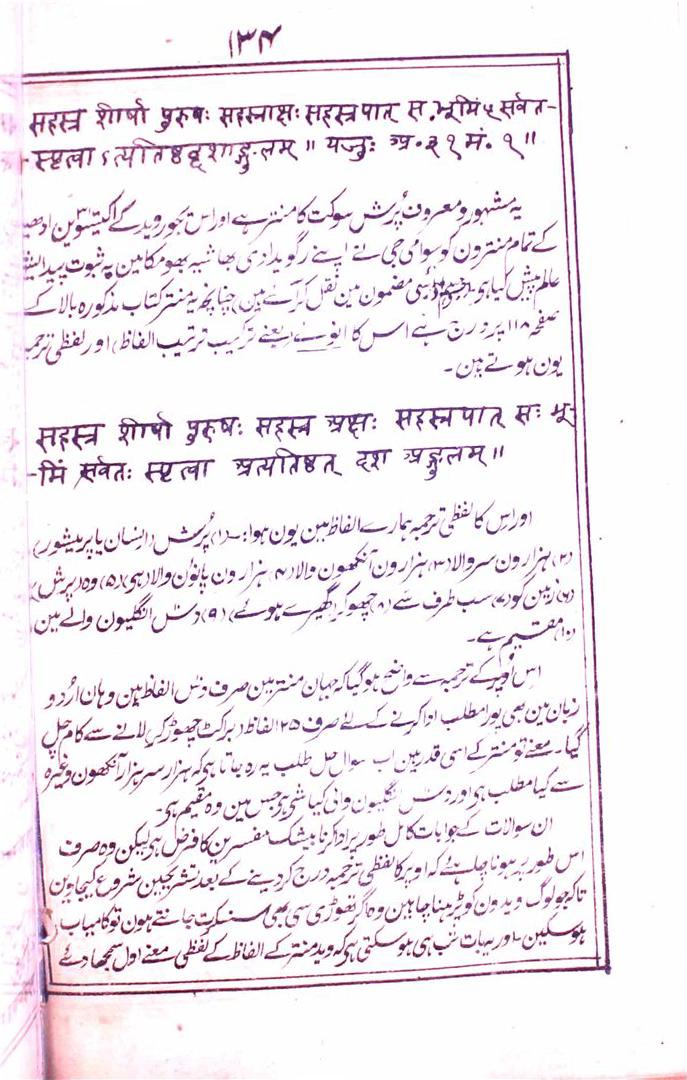 ۱۳۴
सहस्त्र शीर्षा पुरुषः सहस्त्राक्षः सहस्त्रपात् स. भूमिं ५ सर्वत-
-स्पृत्वा ऽत्यतिष्ठद्दशाङ्गुलम् ॥ यजुः अ॰ ३१ मं. १ ॥
یہ مشہور و معروف پُرش سوکت کا منتر ہے اور اس یجور وید کے اکتیسوین
کے تمام منترون کو سوامی جی نے اپنے رگویدادی بھاشیہ بھومکا مین بہ ثبوت پیدایش
عالم پیش کیا ہو۔ اسی مضمون مین نقل کر آئے ہین چنانچہ یہ منتر کتاب مذکورہ بالا کے
صفحہ ۱۱۸ پر درج ہے اس کا انوے (یعنے ترکیب ترتیب الفاظ) اور لفظی ترجمہ
یون ہوتے ہین۔
सहस्त्र शीर्षा पुरुषः सहस्त्र अक्षः सहस्त्रपात् सः भू-
-मिं सर्वतः स्पृत्वा अत्यतिष्ठत् दश अङ्गुलम् ॥
اور اس کا لفظی ترجمہ ہمارے الفاظ مین یون ہوا:۔ (۱) پُرش (انسان یا پرمیشور)
(۲) ہزارون سر والا (۳) ہزارون آنکھون والا (۴) ہزارون پانؤن والا ہی (۵) وہ (پرش)
(۶) زمین کو (۷) سب طرف سے (۸) چھوکر (گھیرے ہوئے) (۹) دس انگلیون والے مین
(۱۰) مقیم ہے۔
اس اوپر کے ترجمہ سے واضح ہوگیا کہ جہان منتر مین صرف دس الفاظ ہین وہان اردو
زبان مین بھی پورا مطلب ادا کرنے کے لئے صرف ۲۵ الفاظ (بریکٹ چھوڑ کر) لانے سے کام چل
گیا۔ معنے تو منتر کے اسی قدر ہین اب سوال حل طلب یہ رہ جاتا ہی کہ ہزار سر ہزار آنکھون وغیرہ
سے کیا مطلب ہی اور دس انگلیون والی کیا شی ہی جس مین وہ مقیم ہی۔
ان سوالات کے جوابات کامل طور پر ادا کرنا بیشک مفسرین کا فرض ہی لیکن وہ صرف
اس طور پر ہونا چاہئے کہ اوپر کا لفظی ترجمہ درج کر دینے کے بعد تشریحین شروع کیجاوین
تاکہ جو لوگ ویدون کو پڑھنا چاہین وہ اگر تھوڑی سی بھی سنسکرت جانتے ہون تو کامیاب
ہوسکین۔ اور یہ بات تب ہی ہوسکتی ہی کہ وید منتر کے الفاظ کے لفظی معنے اول سمجھا دئے